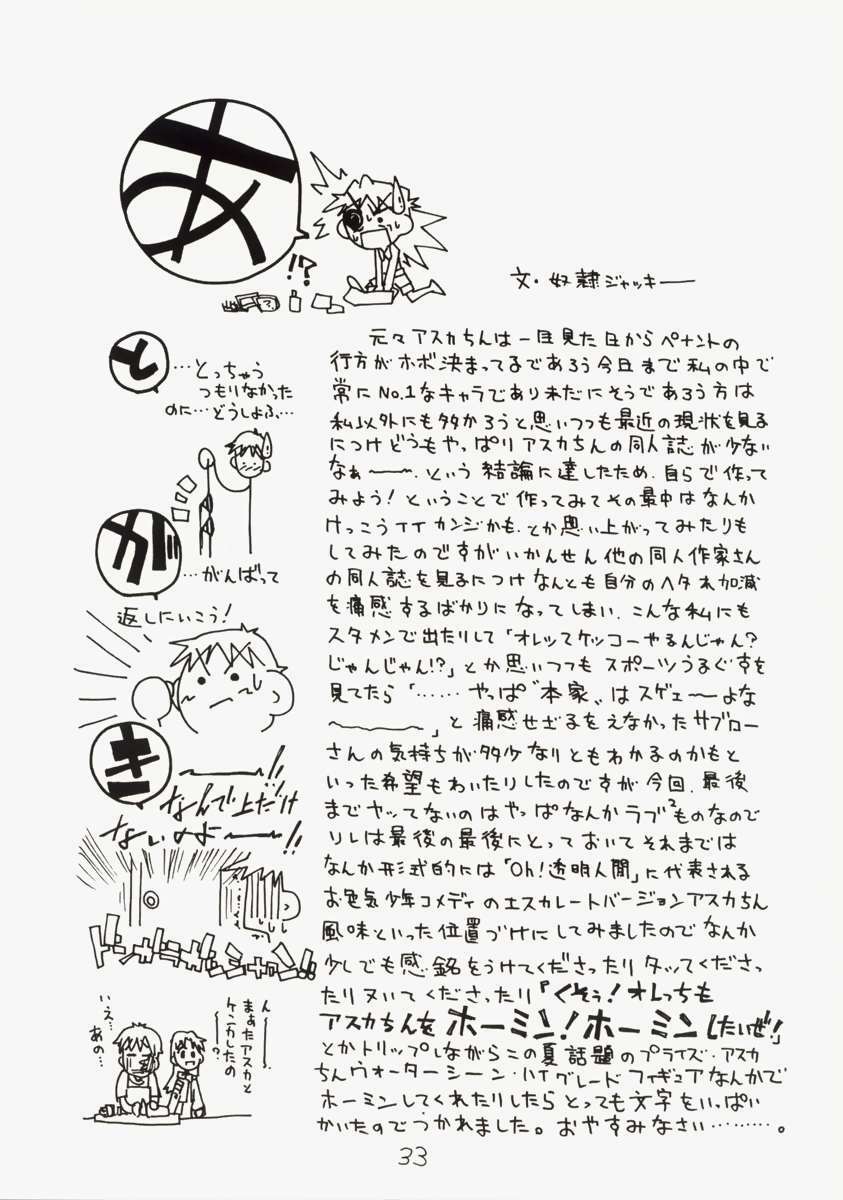 あ
!?
文・奴隷ジャッキー
と
…とっちゃう
つもりなかった
のに…どうしよふ…
が
…がんばって
返しにいこう!
き
〜〜〜!!
なんで上だけ
ないのよ〜〜!!
ん〜〜
まぁたアスカと
ケンカしたの
〜〜?
いえ…
あの…
元々アスカちんは一目見た日からペナントの
行方がホボ決まってるであろう今日まで私の中で
常にNo.1なキャラであり未だにそうであろう方は
私以外にも多かろうと思いつつも最近の現状を見る
につけどうもやっぱりアスカちんの同人誌が少ない
なぁ〜〜、という結論に達したため、自らで作って
みよう!ということで作ってみてその最中はなんか
けっこうイイカンジかも、とか思い上がってみたりも
してみたのですがいかんせん他の同人作家さん
の同人誌を見るにつけなんとも自分のヘタれ加減
を痛感するばかりになってしまい、こんな私にも
スタメンで出たりして「オレッてケッコーやるんじゃん?
じゃんじゃん!?」とか思いつつもスポーツうるぐすを
見てたら「……やっぱ〝本家〟はスゲェ〜よな
〜〜〜〜」と痛感せざるをえなかったサブロー
さんの気持ちが多少なりともわかるのかもと
いった希望もわいたりしたのですが今回、最後
までヤッてないのはやっぱなんかラブ²ものなので
ソレは最後の最後にとっておいてそれまでは
なんか形式的には「Oh!透明人間」に代表される
お色気少年コメディのエスカレートバージョンアスカちん
風味といった位置づけにしてみましたのでなんか
少しでも感銘をうけてくださったりタッてくださっ
たりヌいてくださったり『くそぅ!オレっちも
アスカちんをホーミン!ホーミンしたいぜ!』
とかトリップしながらこの夏話題のプライズ・アスカ
ちんウォーターシーン・ハイグレードフィギュアなんかで
ホーミンしてくれたりしたらとっても文字をいっぱい
かいたのでつかれました。おやすみなさい………。
33